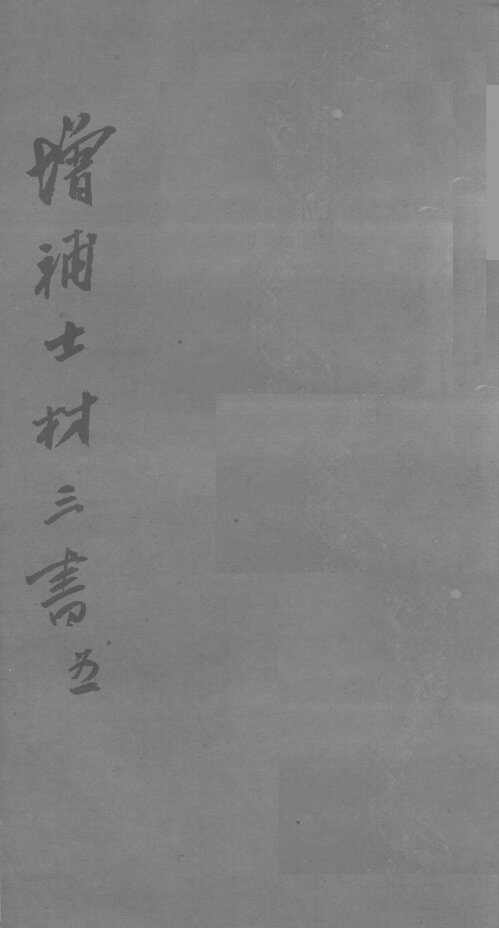 增補士材三書 五